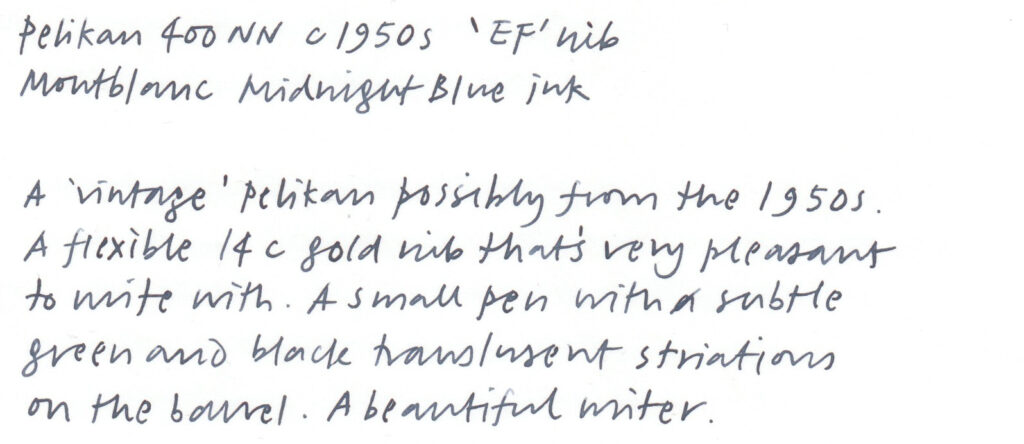 Pelikan 400NN c1950s 'EF' nib
Montblanc Midnight Blue ink
A 'vintage' Pelikan possibly from the 1950s.
A flexible 14c gold nib that's very pleasant
to write with. A small pen with a subtle
green and black translusent striations
on the barrel. A beautiful writer.